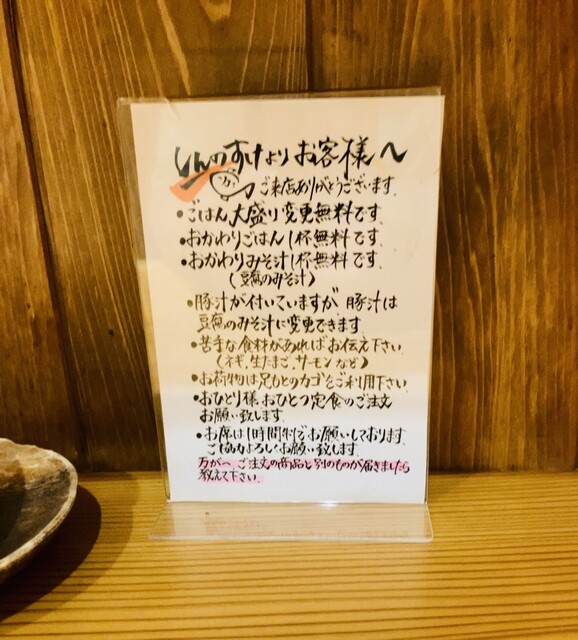 しんのすけより お客様へ
ご来店ありがとうございます。
・ごはん大盛り変更無料です。
・おかわりごはん1杯無料です。
・おかわりみそ汁1杯無料です。
(豆腐のみそ汁)
・豚汁が付いていますが 豚汁は
豆腐のみそ汁に変更できます。
・苦手な食材があればお伝え下さい
(ネギ、生たまご、サーモンなど)
・お荷物は足もとのカゴをご利用下さい。
・おひとり様 おひとつ定食のご注文
お願い致します。
・お席は1時間制でお願いしております。
ご協力よろしくお願い致します。
万が一、ご注文の商品と別のものが届きましたら
教えて下さい。